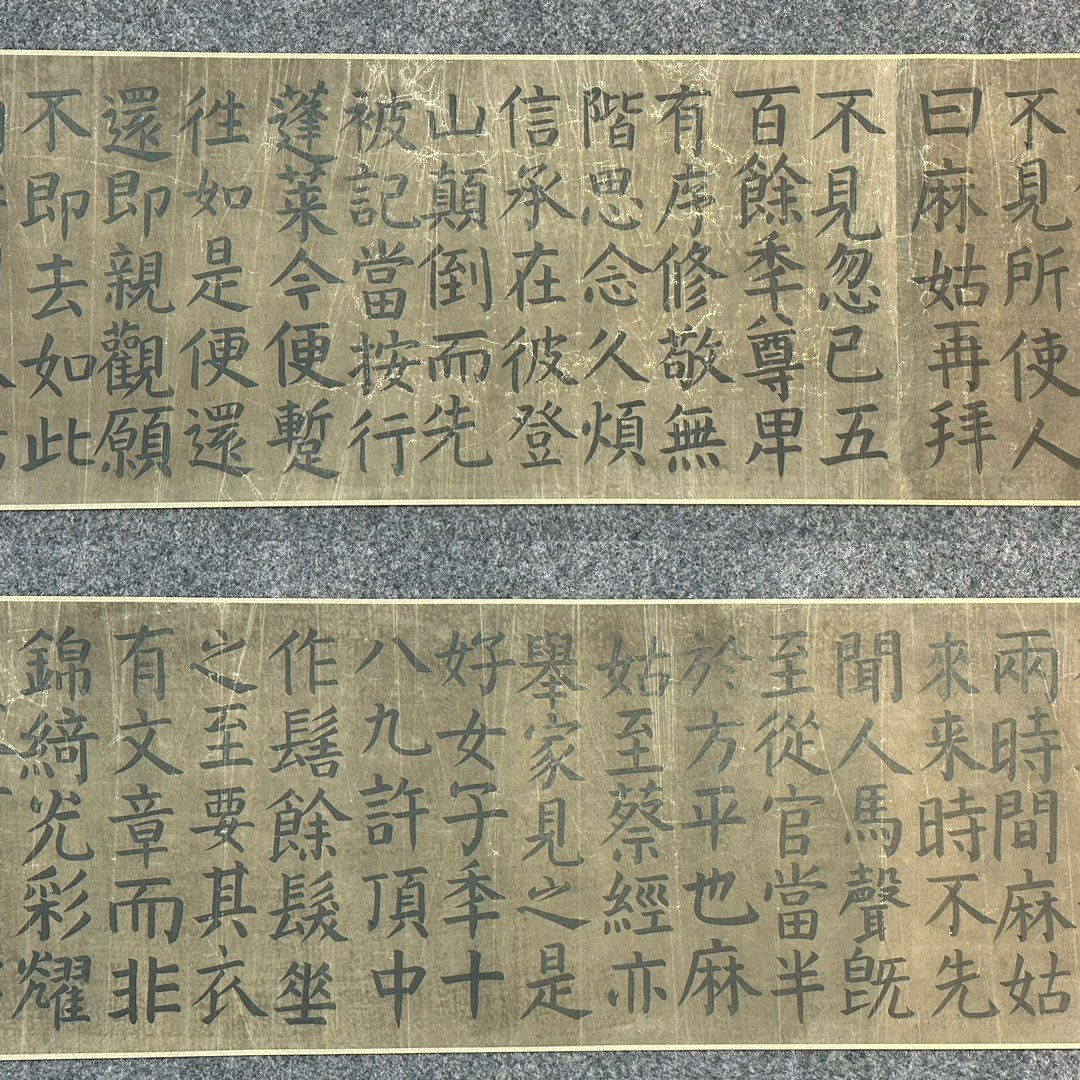 不見所使人
曰麻姑再拜
不見忽已五
百餘秊尊卑
有序修敬無
階思念久煩
信承在彼登
山顛倒而先
被記當按行
蓬莱今便蹔
往如是便還
還即親觀願
不即去如此
兩時間麻姑
來来時不先
聞人馬聲既
至從官當半
於方平也麻
姑至蔡經亦
舉家見之是
好女子秊十
八九許頂中
作髻餘髮垂
之至要其衣
有文章而非
錦綺光彩耀